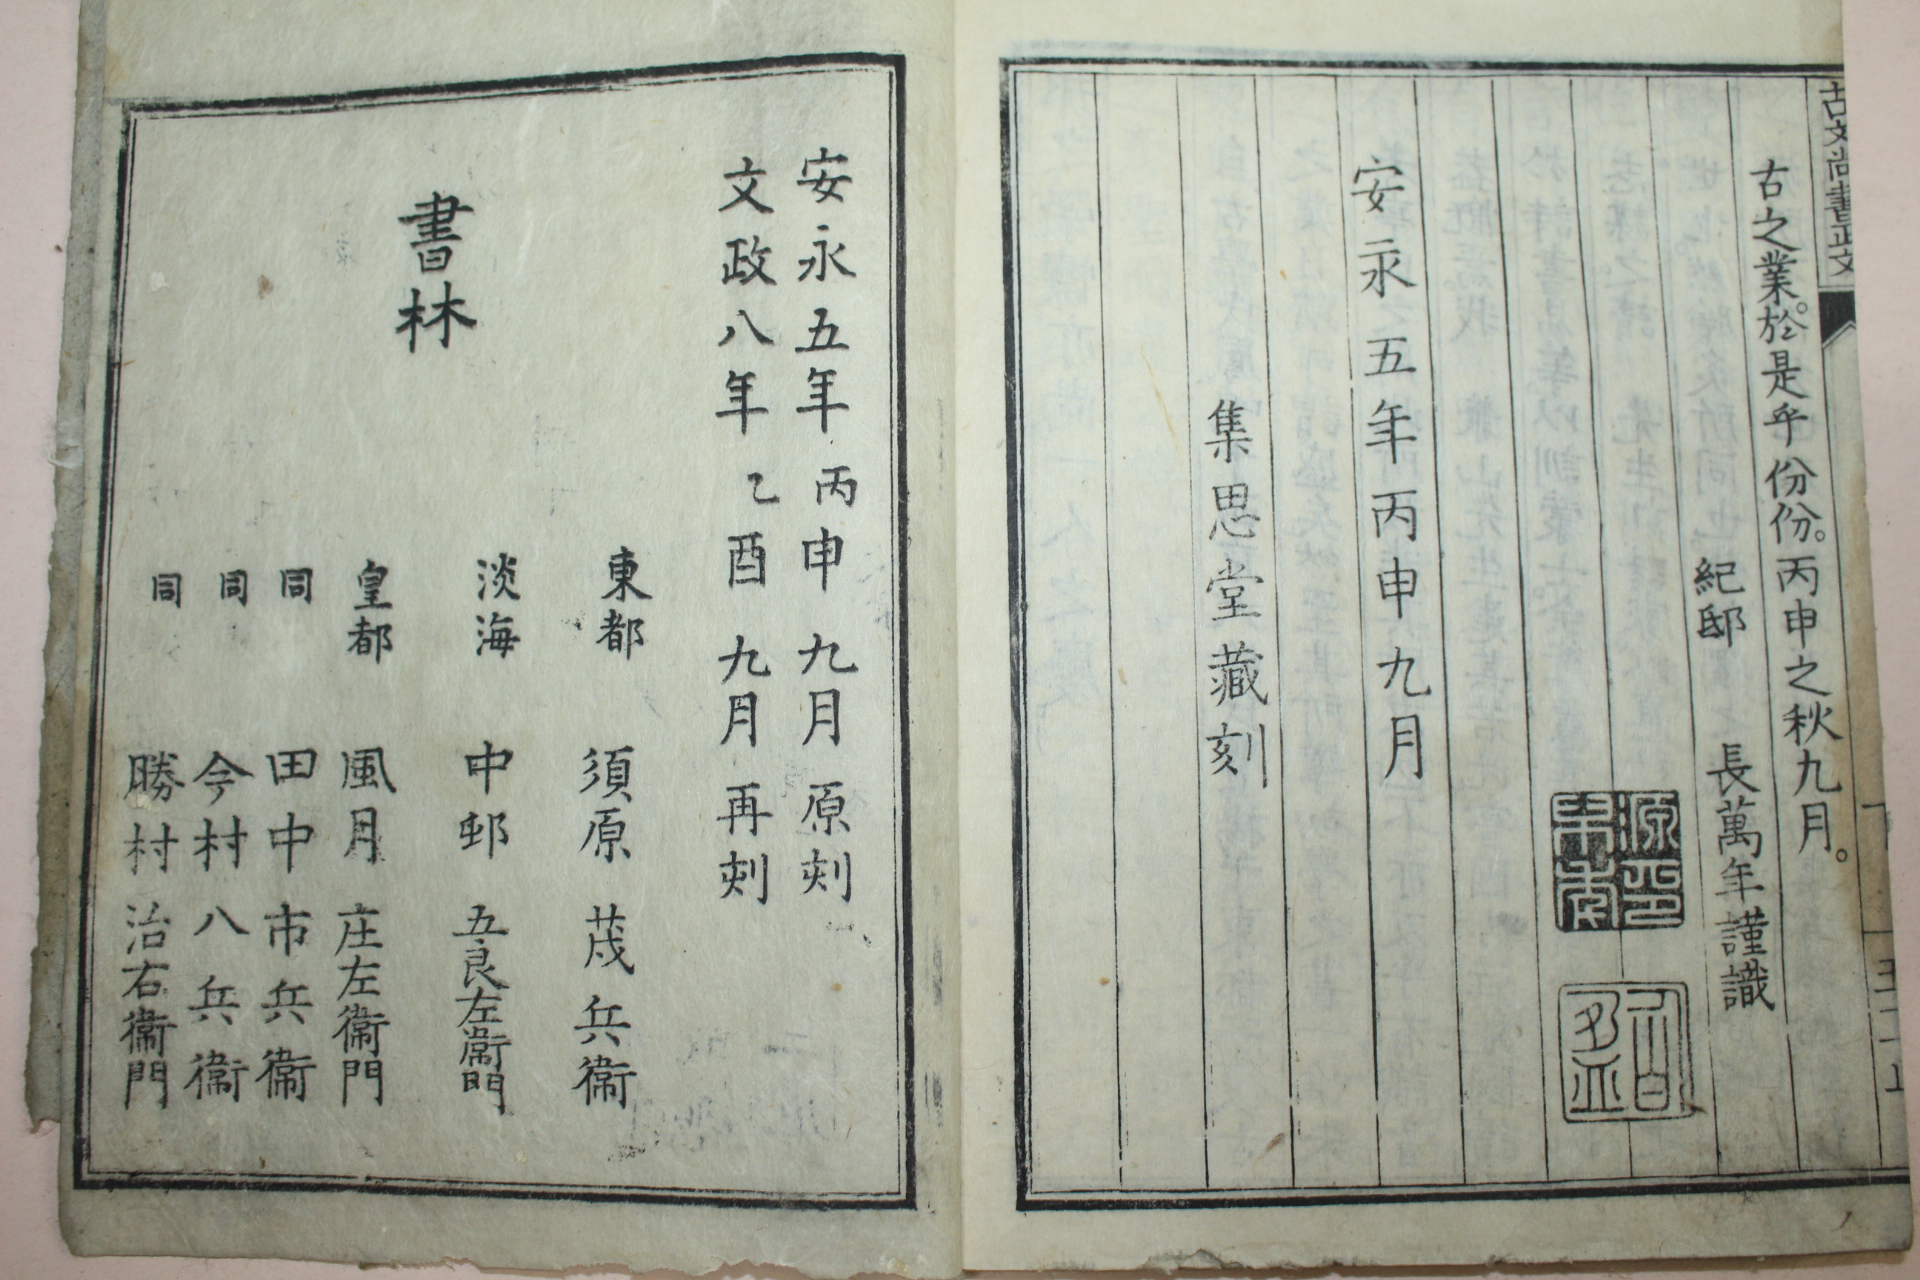 古文尚書正文
古之業。於是乎份份。丙申之秋九月。
紀邸 長萬年謹識
安永五年丙申九月
集思堂藏刻
安永五年丙申九月原刻
文政八年乙酉九月再刻
書林
東都 須原茂兵衛
淡海 中邨五良左衛門
皇都 風月庄左衛門
同 田中市兵衛
同 今村八兵衛
同 勝村治右衛門